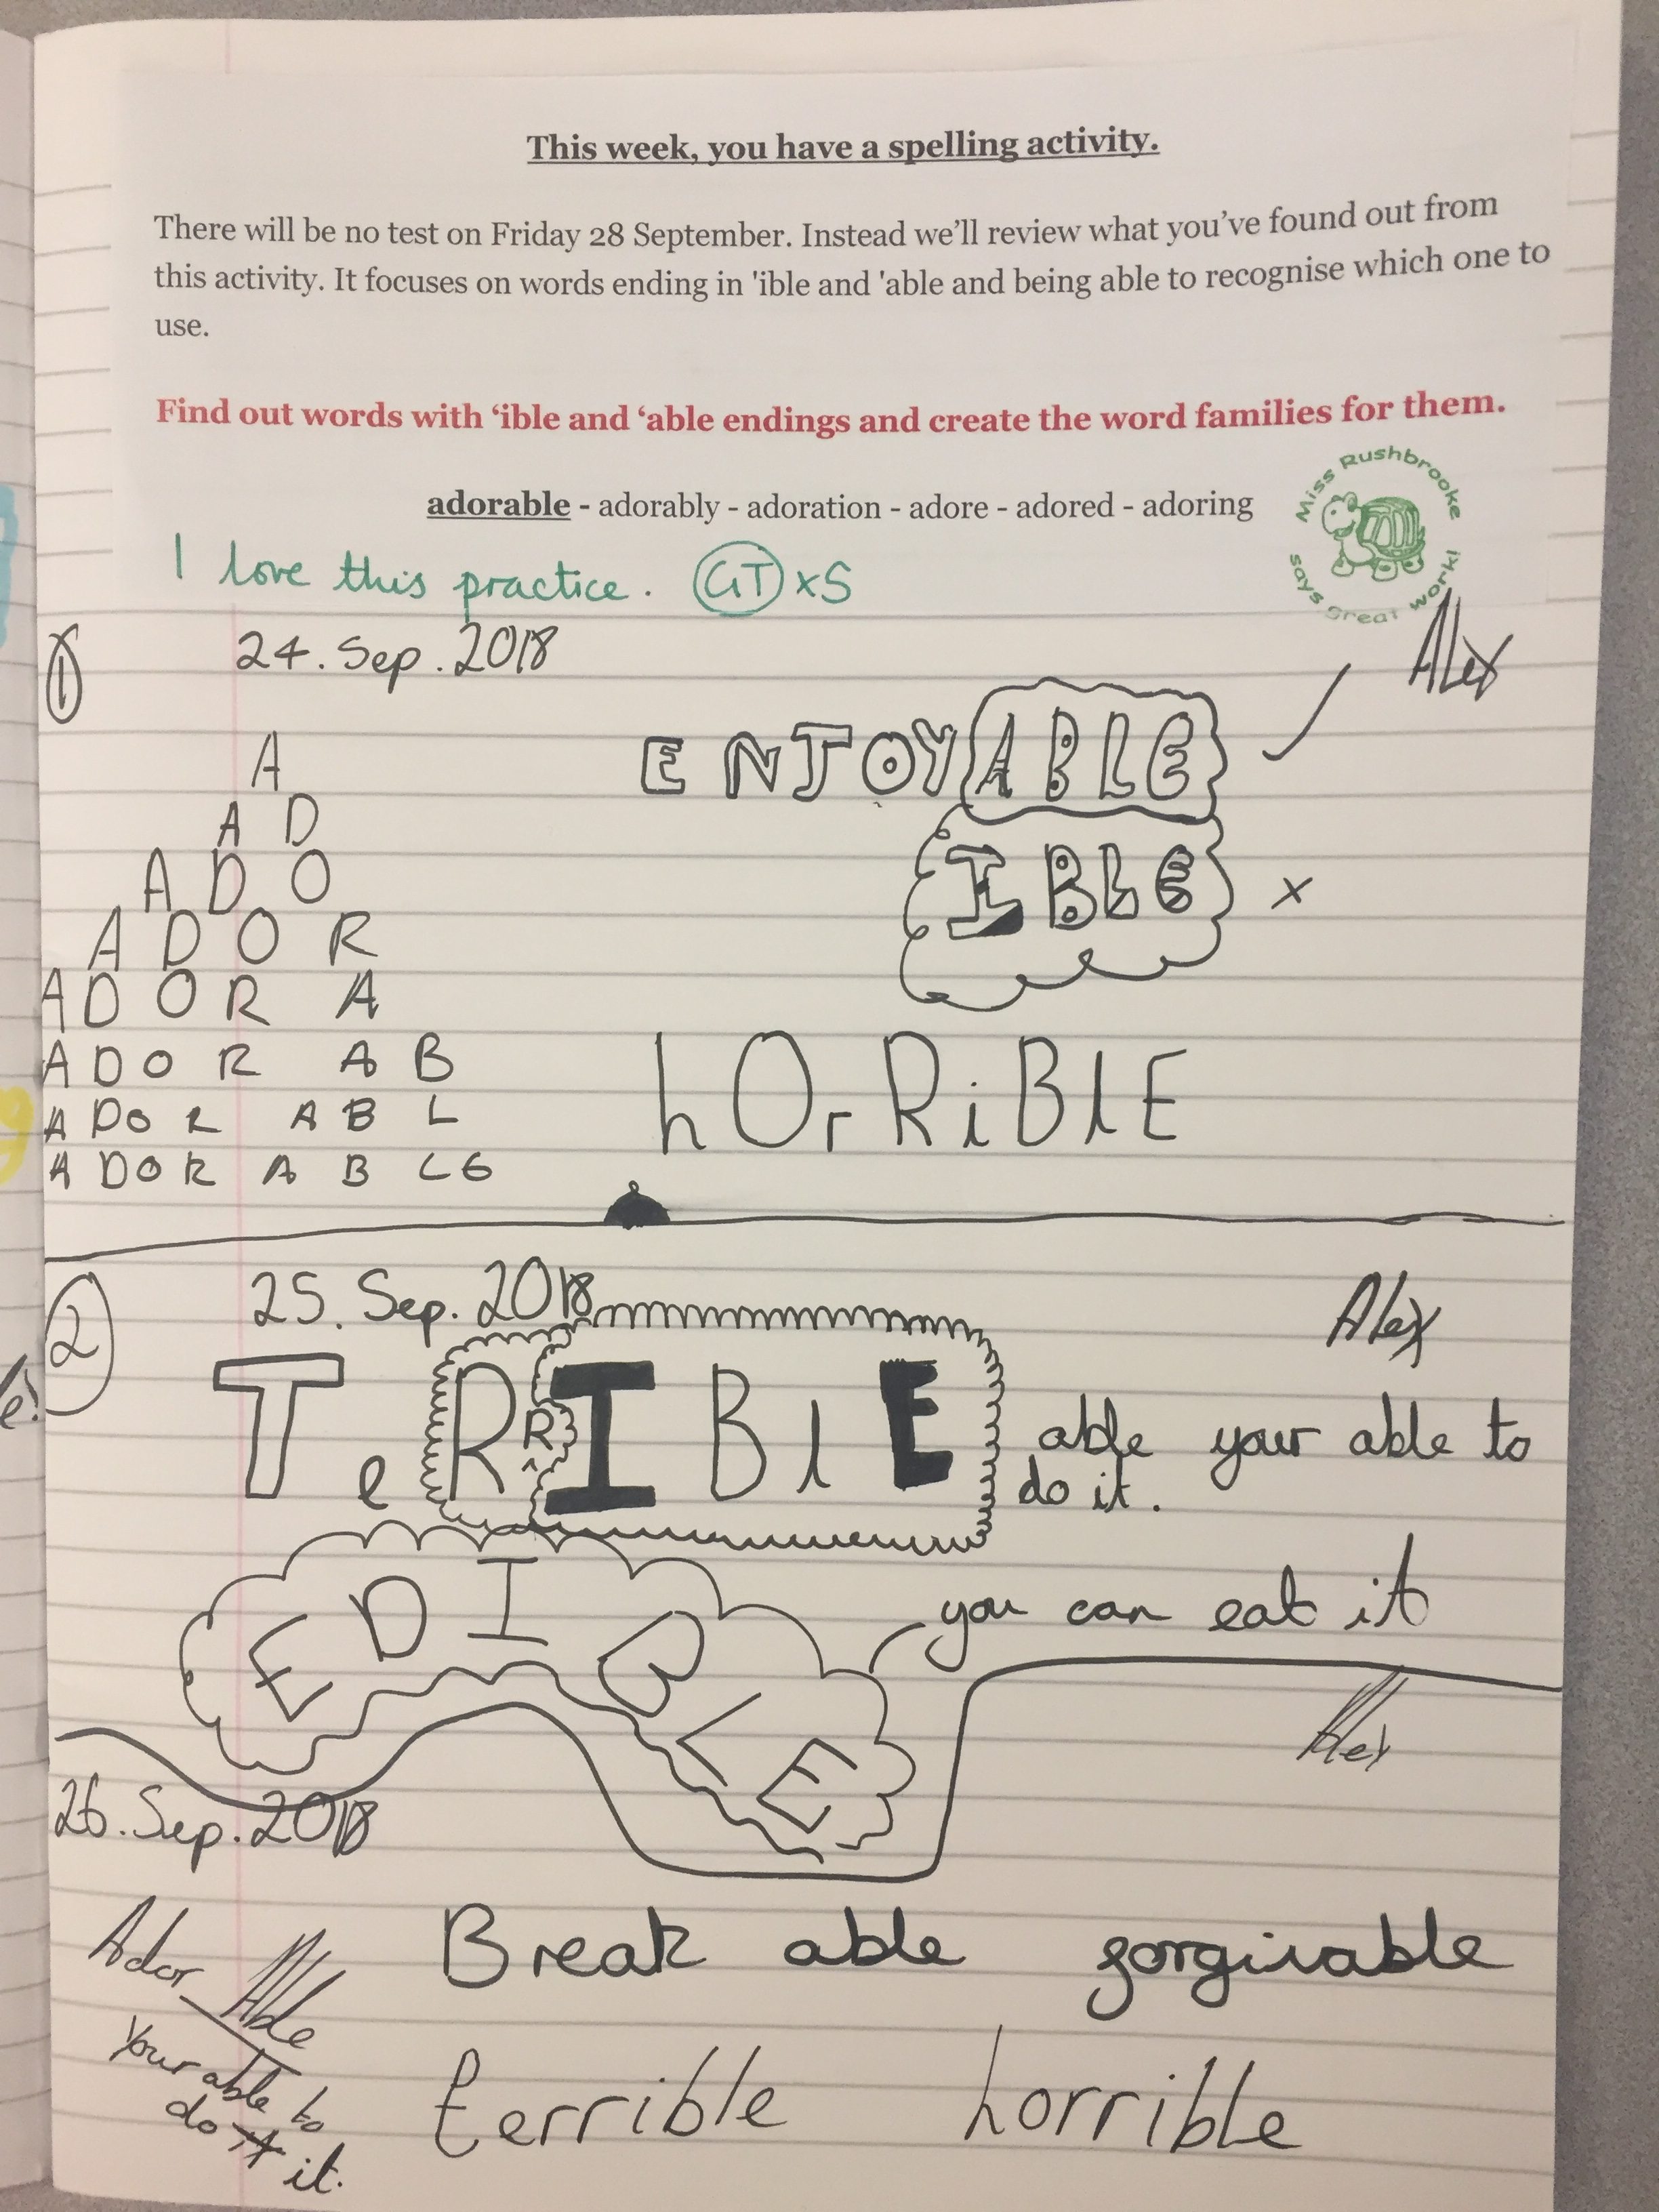 This week, you have a spelling activity.
There will be no test on Friday 28 September. Instead we'll review what you've found out from
this activity. It focuses on words ending in 'ible and 'able and being able to recognise which one to
use.
Find out words with ‘ible and ‘able endings and create the word families for them.
adorable - adorably - adoration - adore - adored - adoring
Miss Rushbrooke
says great work!
I love this practice. GT xS
1 24.Sep.2018
Alex
A
A D
A D O
A D O R
A D O R A
A D O R A B
A D O R A B L
A D O R A B L E
ENJOYABLE
IBLE x
hOrRiBlE
2 25.Sep.2018
Alex
TeRRIBlE able your able to
do it.
EDIBLE you can eat it
Alex
26.Sep.2018
Ador Able
Your able to
do it.
Break able forgivable
terrible horrible